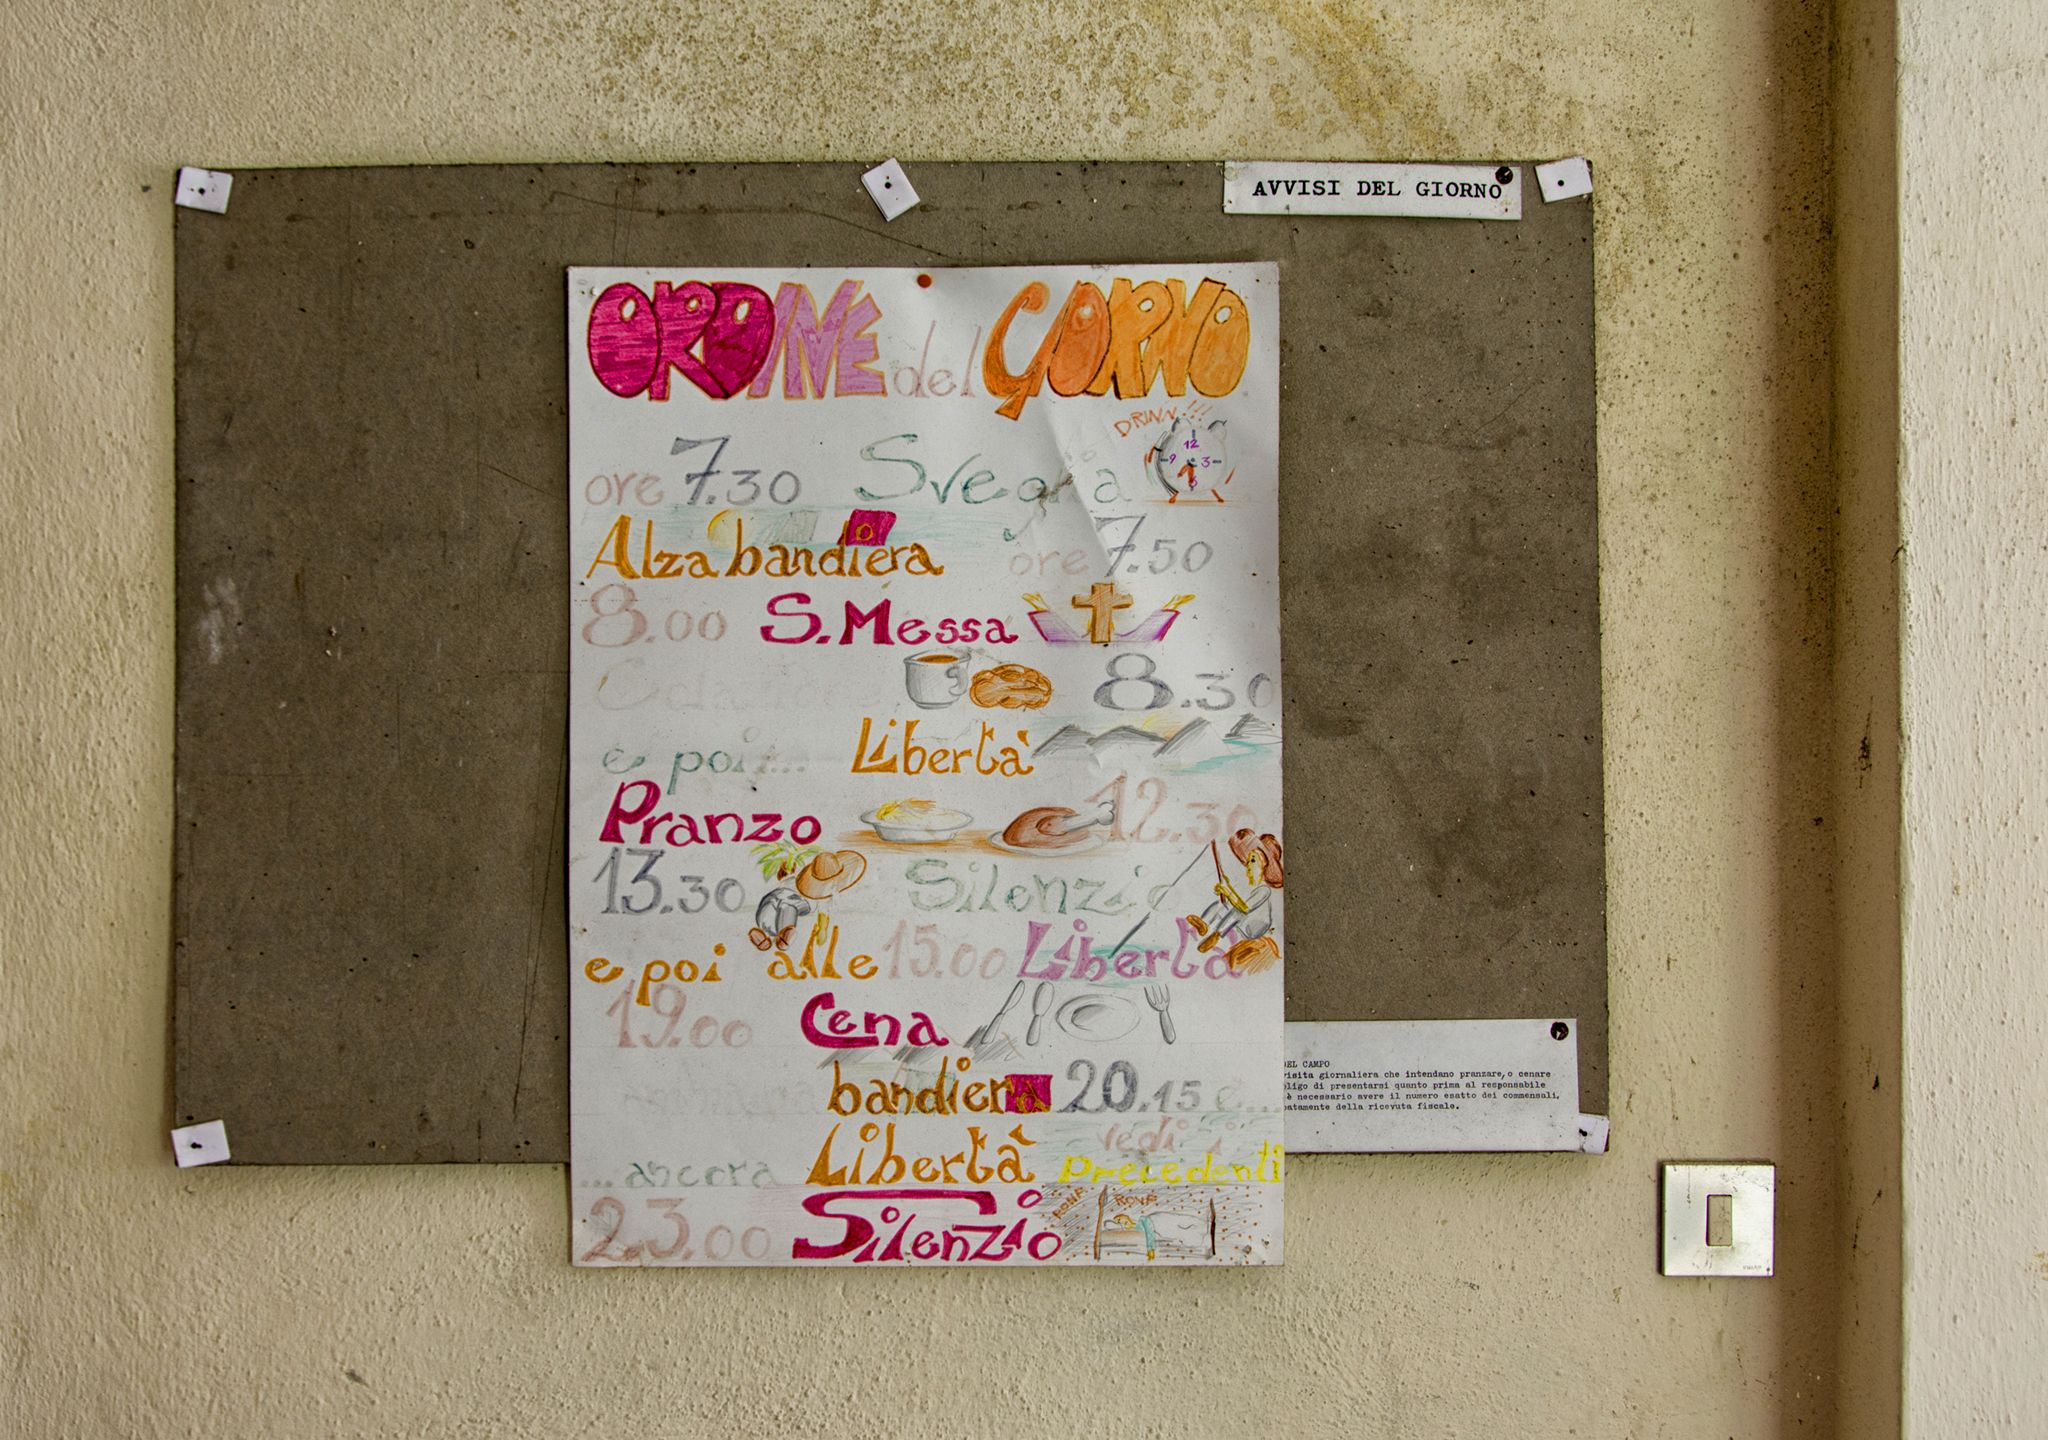 AVVISI DEL GIORNO
ORDINE del GIORNO
DRINN!!!
12
9 3
6
ore 7.30 Sveglia
Alza bandiera ore 7.50
8.00 S. Messa
8.30
e poi... Libertà
Pranzo 12.30
13.30 Silenzio
e poi alle 15.00 Libertà
19.00 Cena
bandiera 20.15 e...
...ancora Libertà vedi i
precedenti
23.00 Silenzio
RONF RONF
DEL CAMPO
visita giornaliera che intendano pranzare, o cenare
bligo di presentarsi quanto prima al responsabile
è necessario avere il numero esatto dei commensali,
atamente della ricevuta fiscale.